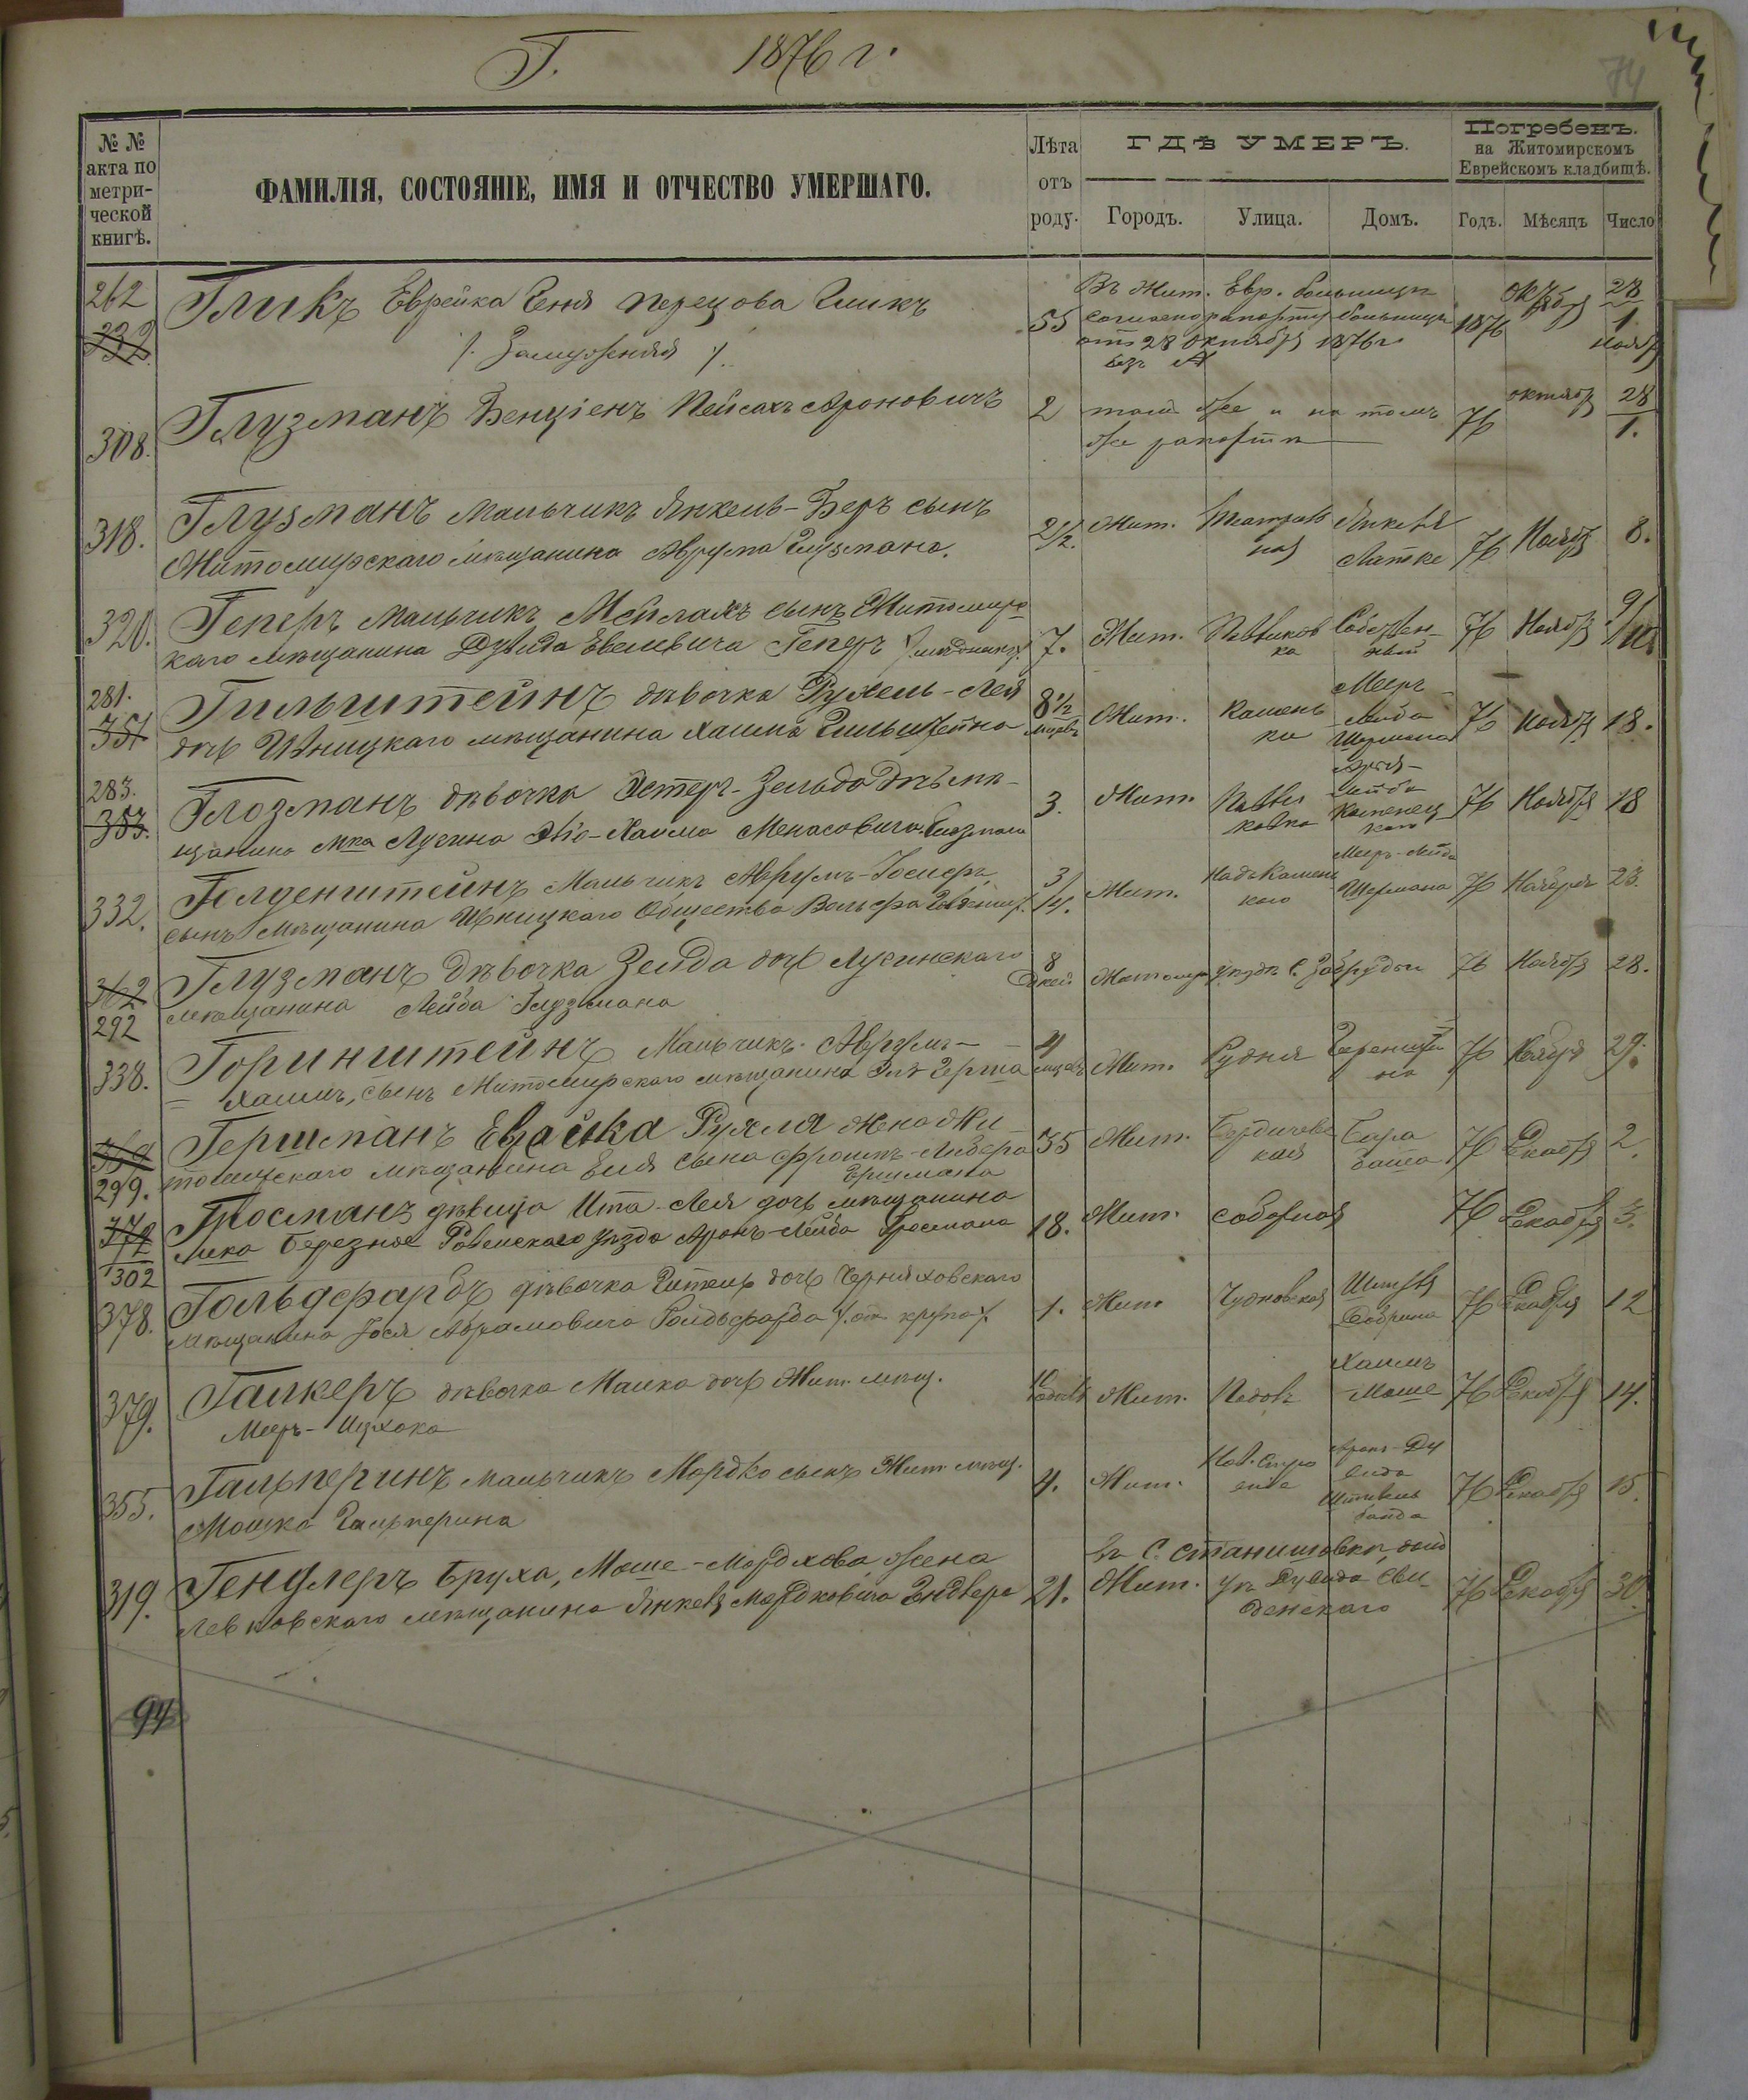 Г. 1876 г.
74
№ №
акта по
метри-
ческой
книгѣ.
ФАМИЛІЯ, СОСТОЯНІЕ, ИМЯ И ОТЧЕСТВО УМЕРШАГО.
Лѣта
отъ
роду.
ГДѢ УМЕРЪ.
Городъ. Улица. Домъ.
Погребенъ.
на Житомирскомъ
Еврейскомъ кладбищѣ.
Годъ. Мѣсяцъ Число
262 Гликъ Еврейка Геня Перецова Гликъ
замужняя
55
Въ Жит. Евр. больницѣ
согласно рапорту больницы
отъ 28 октября 1876 г.
1876 октября 28
1
ноябр
308. Глузманъ Бенціенъ Пейсахъ Ароновичъ 2
тамъ же и по томъ
же рапортѣ
76 октябр 28
1.
318. Глузманъ мальчикъ Янкель-Беръ сынъ
Житомирскаго мѣщанина Аврума Глузмана. 2½. Жит. Театраль
ная Янкеля
Латке 76 Ноябр 8.
320. Геперъ мальчикъ Мейлахъ сынъ Житомирс
каго мѣщанина Дувида Евелевича Геперъ 7. Жит. Павликов
ка Собствен-
ный 76 Ноябр 9/10
281. 351 Гильштейнъ дѣвочка Рухель-Лея
дочь Ивницкаго мѣщанина Хаима Гильштейна 8½
мѣсяц Жит. Камень
ка Меер
Лейба
Шермана 76 Ноябр 18.
283. 353. Глозманъ дѣвочка Эстеръ-Зельда дочь мѣ-
щанина Мка Лугина Хаима Менасовича Глозмана 3. Жит. Павли
ковка Лейба
Каменец
каго 76 Ноября 18
332. Голденштейнъ Мальчикъ Аврумъ-
сынъ мѣщанина Ивницкаго Общества Вольфа 3/4. Жит. Надъ Камен
кою Меер-Лейба
Шермана 76 Ноября 23.
362 292 Глузманъ Дѣвочка Зелда дочь Лугинскаго
мѣщанина Лейба Глузмана 8
дней Житомир уѣздѣ С. 76 Ноябр 28.
338. Горинштейнъ Мальчикъ Аврумъ-
Хаимъ, сынъ Житомирскаго мѣщанина 4
мѣсяц Жит. Рудня 76 Ноября 29.
299. Гершманъ Еврейка Рухля жена Жи
томирскаго мѣщанина Еля сына Фроимъ-Лейзера
Гершмана 35 Жит. Бердичевс
кая 76 Декабр 2.
302 Гросманъ дѣвица Ита-Лея дочь мѣщанина
мка Березное Ровенскаго уѣзда Аронъ-Лейба Гросмана 18. Жит. соборная 76 Декабр 3.
378. Гольдфарбъ дѣвочка Гитель дочь Черняховскаго
мѣщанина Іося Абрамовича Гольдфарба от крупа 1. Жит Чудновская
Бобрина 76 Декабря 12
379. Галкеръ дѣвочка Малка дочь Жит мѣщ.
Меер-Ицхока 10 Жит. Подол Хаимъ
Моше 76 Декабря 14.
355. Гальперинъ мальчикъ Мордко сынъ Жит мѣщ.
Мошка Гальперина 4. Жит. Нов. Стро
еніе Арон-Ду
вида 76 Декабря 15.
319. Гендлеръ Бруха, Моше-Мордхова, жена
Левковскаго мѣщанина Янкеля Мордковича Гендлера 21. Жит. уѣ
въ С. Станишовкѣ, домъ
Дувида Сви
денскаго 76 Декабр 30.
94